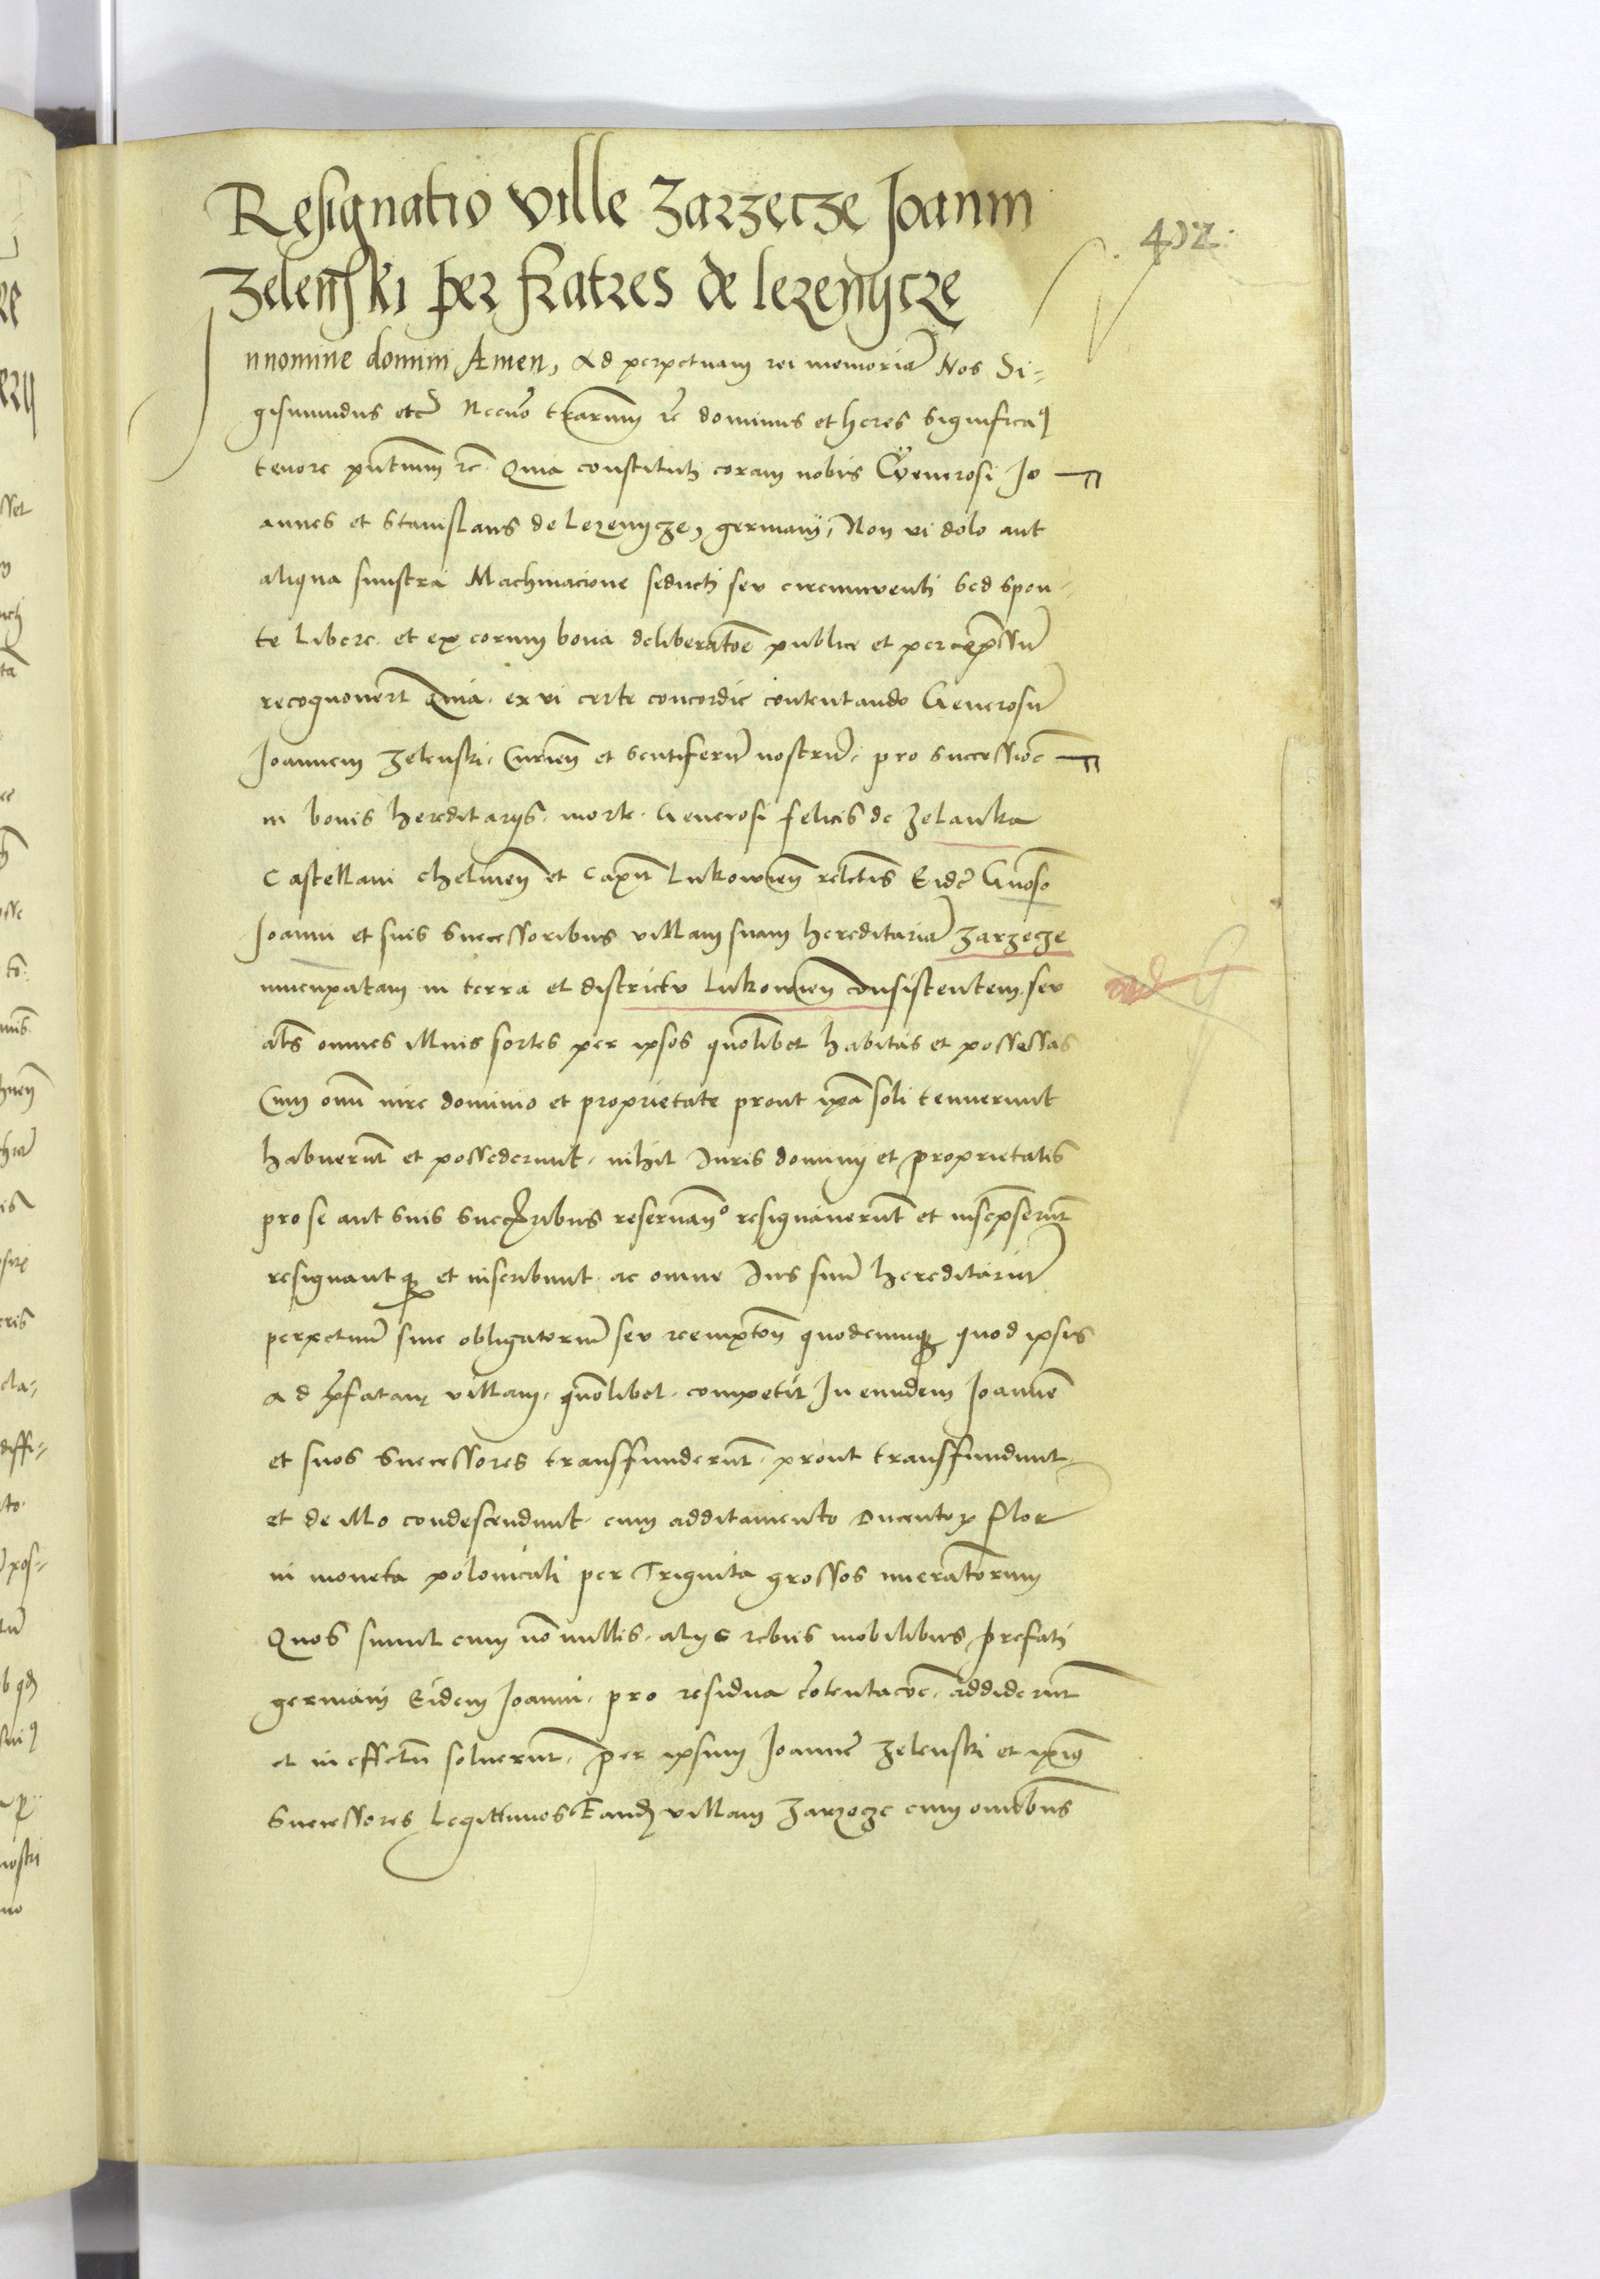 402.
Resignatio ville Zarzecze Joanni
Zelenski per fratres de lezenycze
In nomine domini Amen, Ad perpetuam rei memoriā Nos Si-
gismundus etc̄ Necnō terrarum etc dominus et heres Significam9
tenore pn̄tium etc. Quia constituti coram nobis Generosi Jo
annes et Stanislaus de Lezenycze, germani, Non vi dolo aut
aliqua sinistra Machinacione seducti seu circumventi Sed spon-
te Libere et ex eorum bona deliberatōe publice et per exp̄ssū
recognouerūt Quia ex vi certe concordie contentando Generosū
Joannem Zelenski Curien̄ et Sentiferū nostrū pro successiōe
in bonis hereditarijs morte Generosi felicis de Zelanka
Castellani chelmen̄ et Capn̄ Lukowien̄ relictis Eidē Gn̄oso
Joanni et suis Successoribus villam suam hereditariā Zarzecze
nuncupatam in terra et districtu Lukowien̄ consistentem seu
al̄s omnes illius sortes per ipsos quōlibet habitas et possessas
Cum omni iure dominio et proprietate prout ipsā soli tenuerunt
habuerūt et possederunt nihil Juris dominij et proprietatis
pro se aut suis succ̄oribus reseruan̄o resignauerūt et inscrip̄serūt
resignantq3 et inscribunt ac omne Jus suū hereditariū
perpetuū siue obligatoriū seu reempton̄ quodcumq3 quod ipsis
ad p̄fatam villam quōlibet competit In eundem Joannē
et suos Successores transffunderūt prout transffundunt
et de illo condescendunt cum additamento Ducentor̄ flor̄
in moneta polonicali per Triginta grossos nūeratorum
Quos simul cum nō nullis alijs rebus mobilibus prefati
germani Eidem Joanni pro residua cōtentacōe addiderūt
et in effectū soluerūt per ipsum Joannē Zelenski et ipsius
Successores Legittimos Eand̄ villam Zarzecze cum omnibus